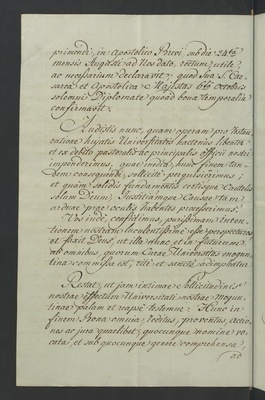 primendi, in Apostolico Brevi sub die 24ta
mensis Augusti ad Nos dato, ratum, utile,
ac necessarium declaravit; quod Sua S. Cæ-
sarea et Apostolica Majestas 6ta Octobris
solemni Diplomate quoad bona temporalia
confirmavit.
Audistis nunc, quam operam pro restau-
ratione hujatis Universitatis hactenus libenter
et ex debito pastoralis ac principalis officii nostri
impenderimus, qua media, hunc finem tan-
dem consequendi, sollicite perquisierimus,
et quàm solidis fundamentis certisque Cautelis
solum Deum, Justitiamque Causæ tam
arduæ præ oculis habentes processerimus.
Vos inde, confidimus, purissimam inten-
tionem nostram luculentissime esse perspecturos
et faxit Deus, ut illa nunc et in futurum
ab omnibus, quorum Curæ Universitas mogun-
tina commissa est, rite et sancte adimpleatur.
Restat, ut jam intimæ Sollicitudinis
nostræ effectum Universitati nostræ Mogun-
tinæ palam et reapse testemur. Hunc in
finem Bona omnia, reditus, proventus, actio-
nes ac jura quælibet, quocunque nomine vo-
cata et sub quocunque genere comprehensa,
ad